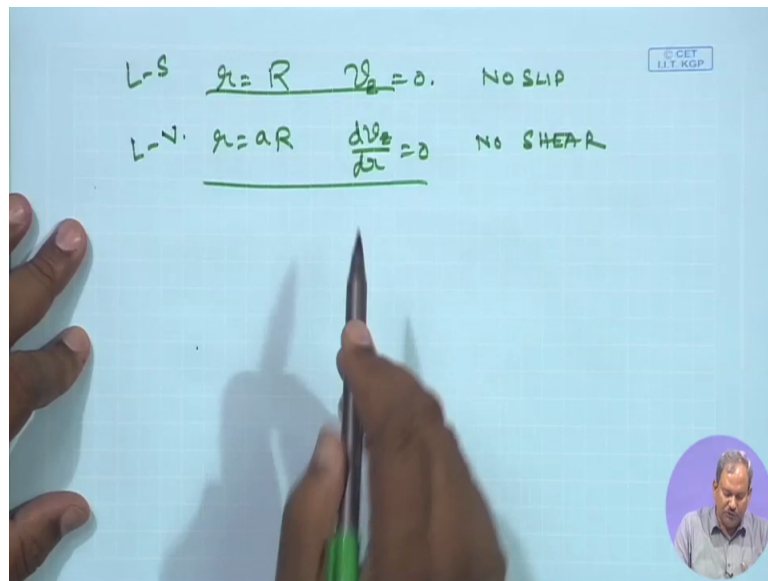 L-S r = R v_z = 0. NO SLIP
© CET
I.I.T. KGP
L-V. r = aR dv_z/dr = 0 NO SHEAR